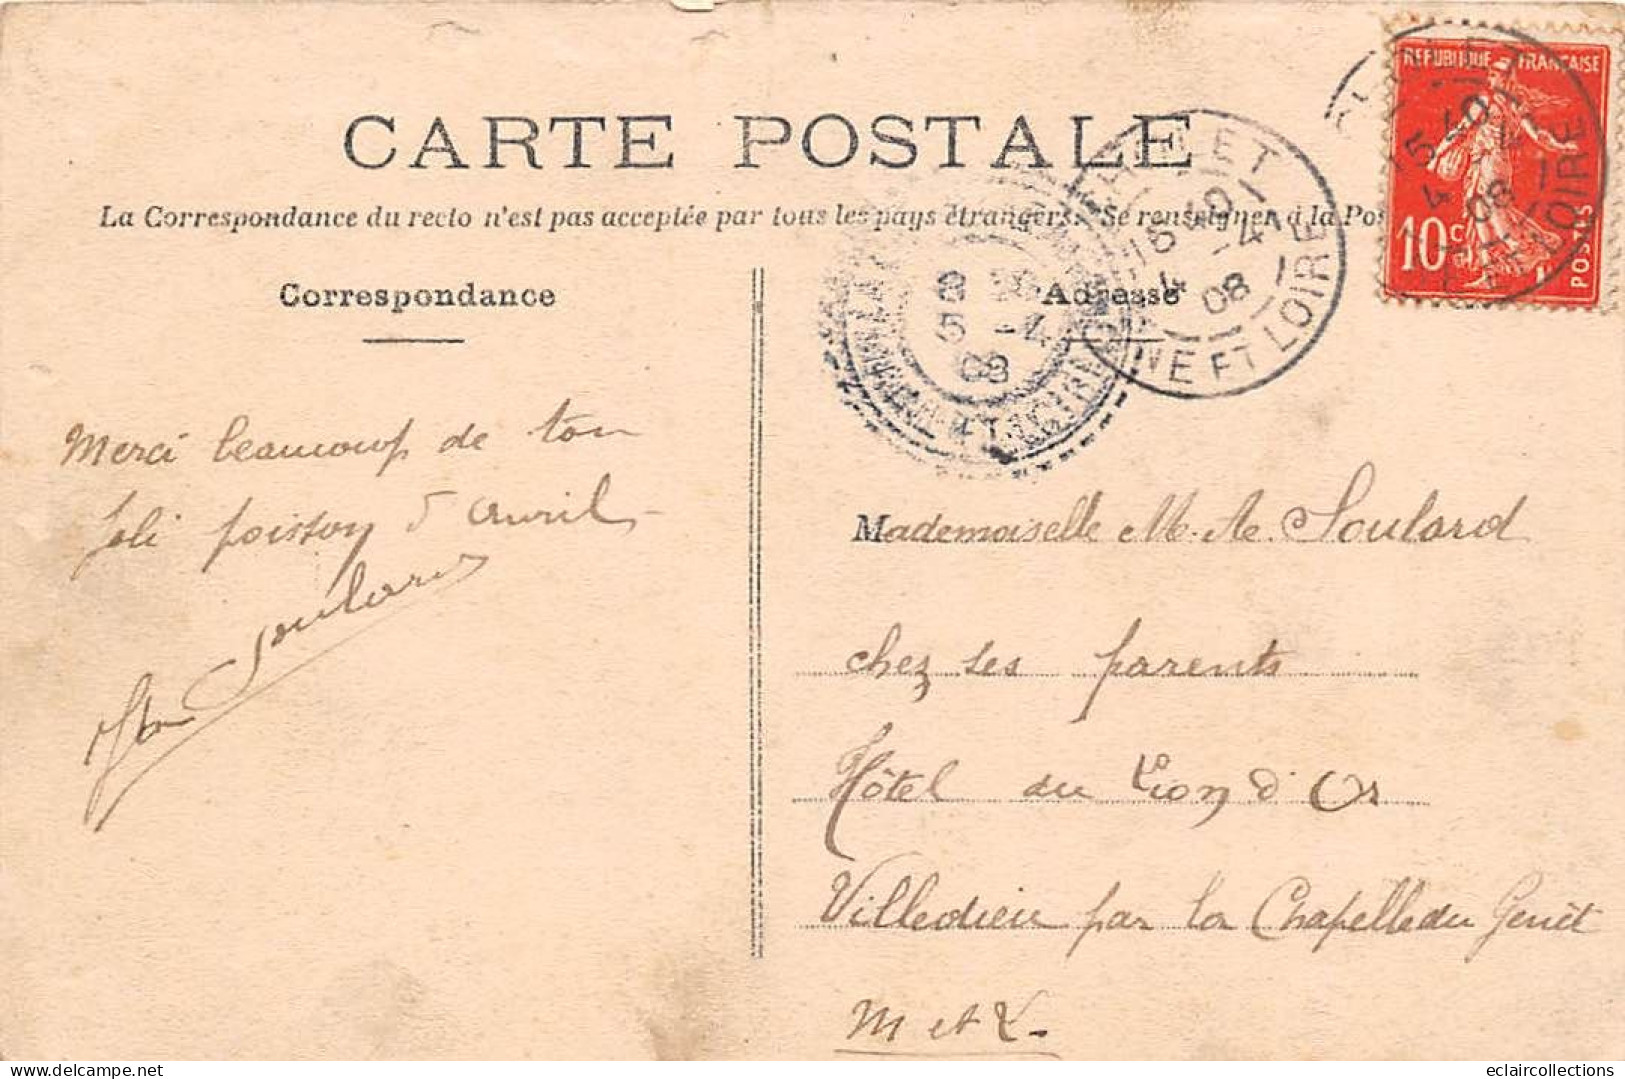 CARTE POSTALE
La Correspondance du recto n'est pas acceptée par tous les pays étrangers. Se renseigner à la Pos
REPUBLIQUE FRANÇAISE
10c
POSTES
15 40
4 -4
08
ET LOIRE
8
5 -4
08
ET LOIRE
Correspondance
Adresse
Merci beaucoup de ton
joli poisson d'avril
Soulard
Mademoiselle M. A. Soulard
chez ses parents
Hôtel du Lion d'Or
Villedieu par la Chapelle du Genêt
M et L.
delcampe.net
eclaircollections